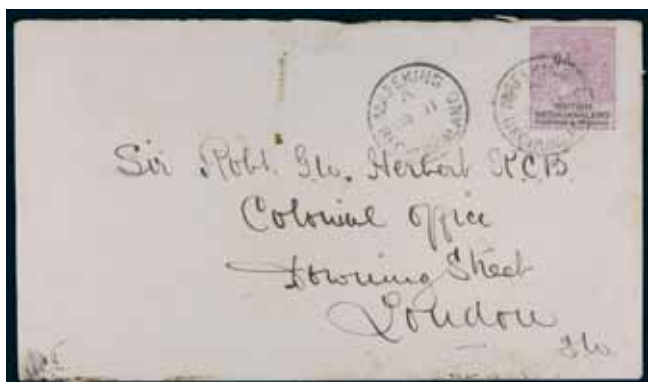 MAFEKING
BECHUANALAND
BRITISH
BECHUANALAND
Sir Robt. G. W. Herbert K.C.B.
Colonial Office
Downing Street
London
S.W.